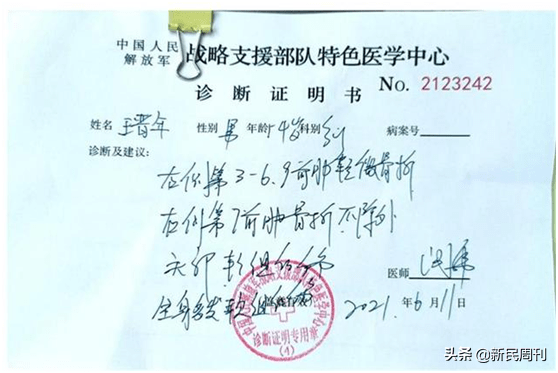 中国人民
解放军
战略支援部队特色医学中心
诊断证明书 NO. 2123242
姓名 王晋年 性别 男 年龄 74岁 科别 病案号
诊断及建议:
左侧第3-6.9前肋轻微骨折
左侧第7前肋骨折不除外
头部软组织伤
医师
全身多发软组织伤
2021年6月11
诊断证明专用章
(1)
头条 @新民周刊